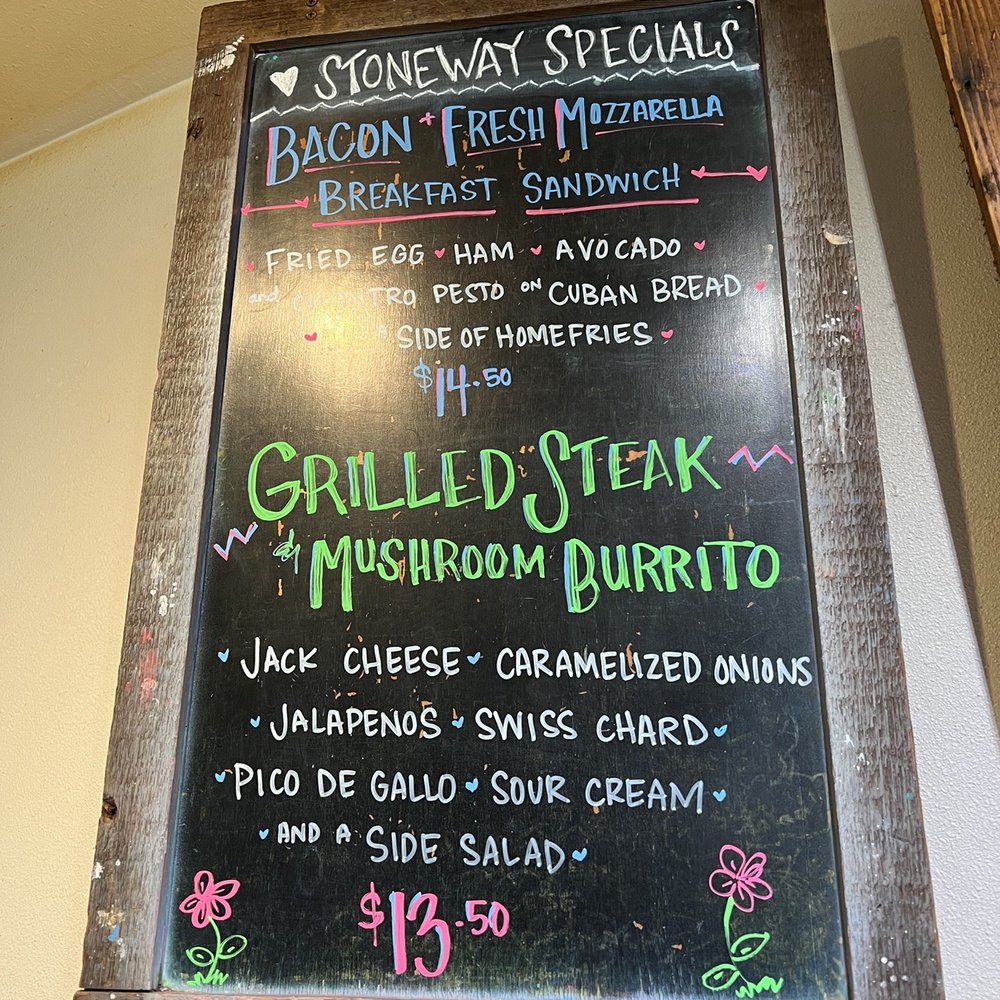 STONEWAY SPECIALS
BACON + FRESH MOZZARELLA
BREAKFAST SANDWICH
FRIED EGG HAM AVOCADO
and CILANTRO PESTO ON CUBAN BREAD
A SIDE OF HOMEFRIES
$14.50
GRILLED STEAK
& MUSHROOM BURRITO
JACK CHEESE CARAMELIZED ONIONS
JALAPENOS SWISS CHARD
PICO DE GALLO SOUR CREAM
AND A SIDE SALAD
$13.50